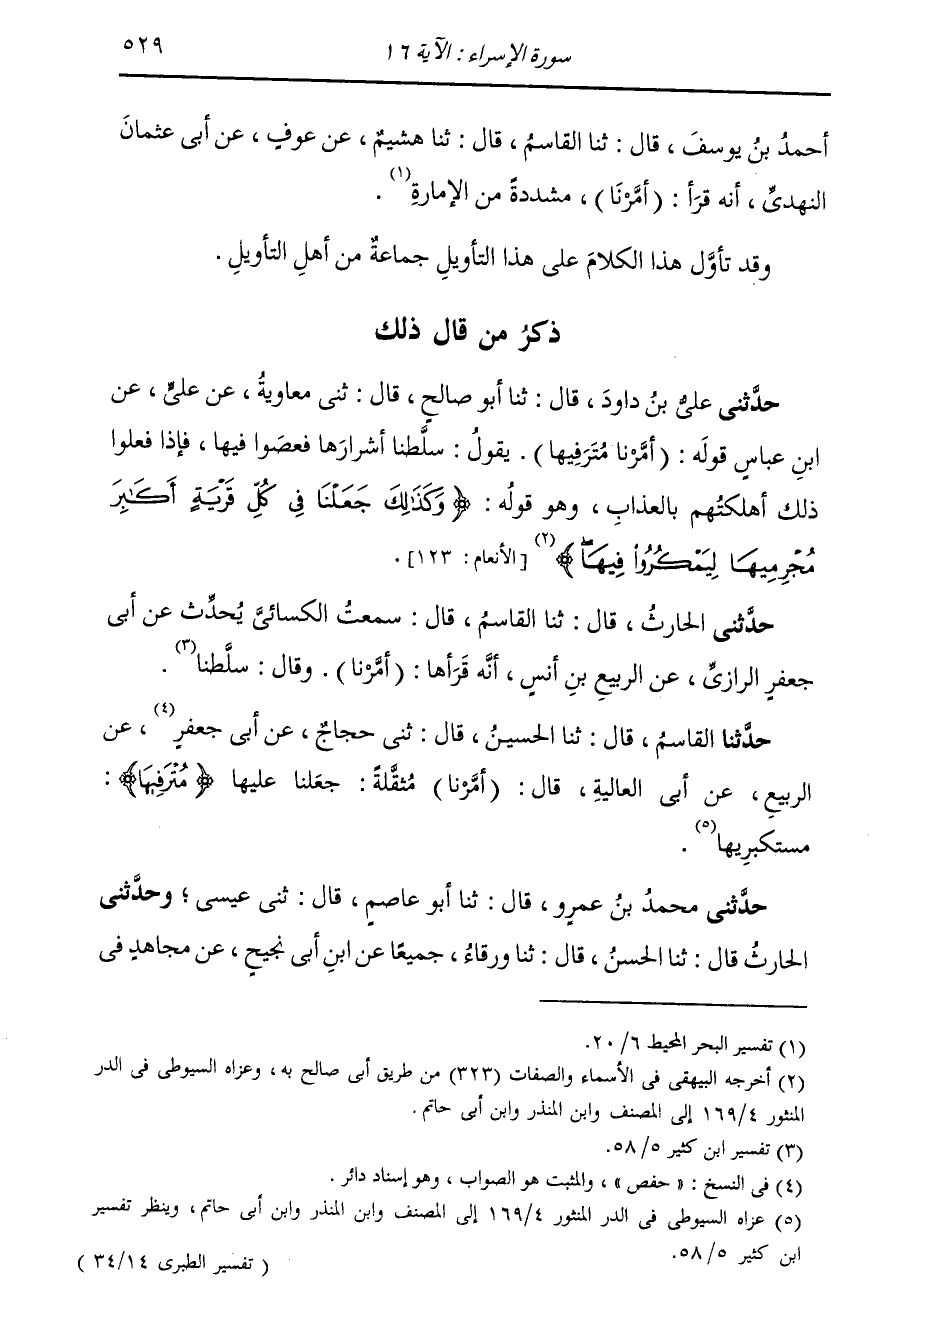 سورة الإسراء : الآية ١٦ ٥٢٩
أحمدُ بنُ يوسفَ ، قال : ثنا القاسمُ ، قال : ثنا هشيمٌ ، عن عوفٍ ، عن أبى عثمانَ
النهدىِّ ، أنه قرَأ : ( أمَّرْنَا ) ، مشددةً من الإمارةِ(١) .
وقد تأوَّل هذا الكلامَ على هذا التأويلِ جماعةٌ من أهلِ التأويلِ .
ذكرُ من قال ذلك
حدَّثنى علىُّ بنُ داودَ ، قال : ثنا أبو صالحٍ ، قال : ثنى معاويةُ ، عن علىٍّ ، عن
ابنِ عباسٍ قولَه : ( أمَّرْنا مُتَرفِيها ) . يقولُ : سلَّطنا أشرارَها فعصَوا فيها ، فإذا فعلوا
ذلك أهلكتُهم بالعذابِ ، وهو قولُه : ﴿ وَكَذَٰلِكَ جَعَلْنَا فِى كُلِّ قَرْيَةٍ أَكَـٰبِرَ
مُجْرِمِيهَا لِيَمْكُرُواْ فِيهَاۖ ﴾(٢) [الأنعام : ١٢٣] .
حدَّثنى الحارثُ ، قال : ثنا القاسمُ ، قال : سمعتُ الكسائىَّ يُحدِّث عن أبى
جعفرٍ الرازىِّ ، عن الربيعِ بنِ أنسٍ ، أنَّه قَرَأها : ( أمَّرْنا ) . وقال : سلَّطنا(٣) .
حدَّثنا القاسمُ ، قال : ثنا الحسينُ ، قال : ثنى حجاجٌ ، عن أبى جعفرٍ(٤) ، عن
الربيعِ ، عن أبى العاليةِ ، قال : ( أمَّرْنا ) مُثقَّلةً : جعَلنا عليها ﴿ مُتْرَفِيهَا ﴾ :
مستكبرِيها(٥) .
حدَّثنى محمدُ بنُ عمرٍو ، قال : ثنا أبو عاصمٍ ، قال : ثنى عيسى ؛ وحدَّثنى
الحارثُ قال : ثنا الحسنُ ، قال : ثنا ورقاءُ ، جميعًا عن ابنِ أبى نجيحٍ ، عن مجاهدٍ فى
(١) تفسير البحر المحيط ٦/ ٢٠.
(٢) أخرجه البيهقى فى الأسماء والصفات (٣٢٣) من طريق أبى صالح به ، وعزاه السيوطى فى الدر
المنثور ١٦٩/٤ إلى المصنف وابن المنذر وابن أبى حاتم .
(٣) تفسير ابن كثير ٥/ ٥٨.
(٤) فى النسخ : « حفص » ، والمثبت هو الصواب ، وهو إسناد دائر .
(٥) عزاه السيوطى فى الدر المنثور ١٦٩/٤ إلى المصنف وابن المنذر وابن أبى حاتم ، وينظر تفسير
ابن كثير ٥/ ٥٨.
( تفسير الطبرى ٣٤/١٤ )